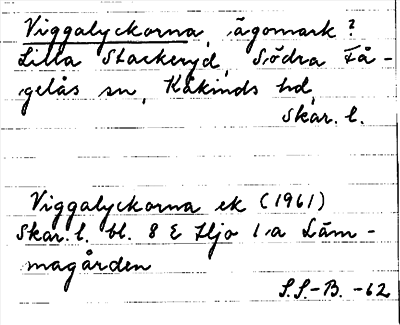 Viggalyckorna, ägomark?
Lilla Stackeryd, Södra Få-
gelås sn, Kåkinds hd,
Skar. l.
Viggalyckorna ek (1961)
Skar. l. bl. 8 E Hjo 1:a Läm-
magården
S.S.-B. -62